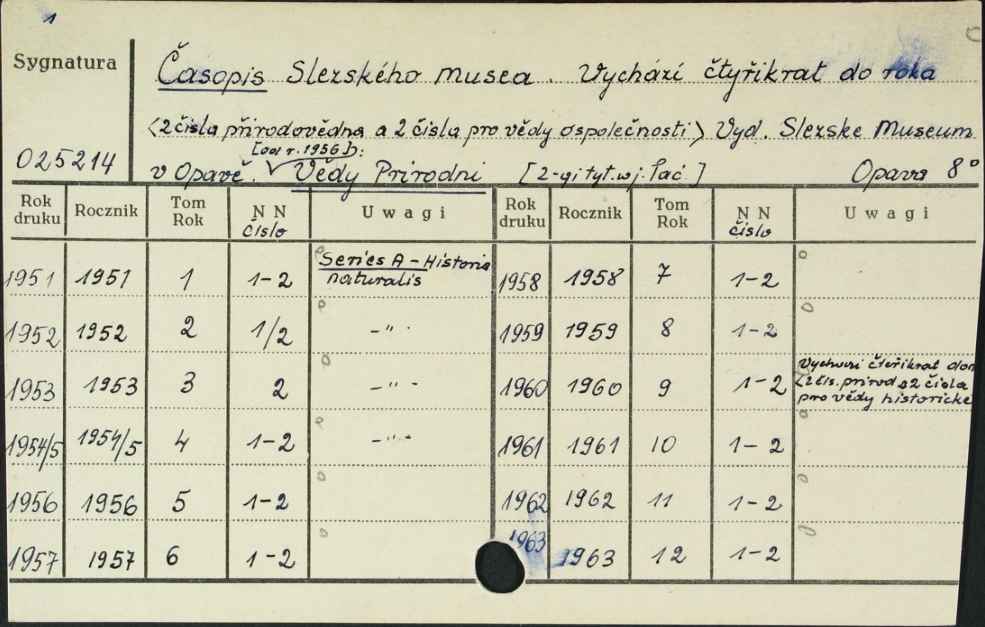 1
Sygnatura
Časopis Slezského musea. Vychází čtyřikrat do roka
(2 čisla přirodovědna a 2 čísla pro vědy ospolečnosti) Vyd. Slezske Museum
[od r. 1956]:
025214
v Opavě. Vědy Prirodni [2-gi tyt. wj. łać.] Opava 8°
Rok druku Rocznik Tom Rok N N čislo Uwagi Rok druku Rocznik Tom Rok N N čislo Uwagi
1951 1951 1 1-2 Series A - Historia naturalis 1958 1958 7 1-2
1952 1952 2 1/2 -"- 1959 1959 8 1-2
1953 1953 3 2 -"- 1960 1960 9 1-2 Vychazi čteřikrat do
(2 čis. prirod a 2 čisla
pro vědy historicke
1954/5 1954/5 4 1-2 -"- 1961 1961 10 1-2
1956 1956 5 1-2 1962 1962 11 1-2
1957 1957 6 1-2 1963 1963 12 1-2